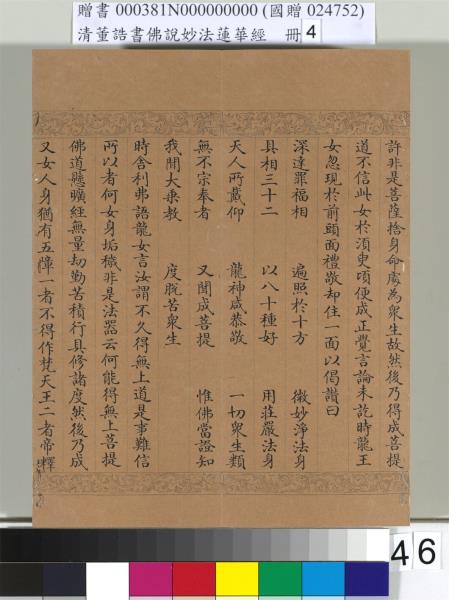 贈書 000381N000000000 (國贈 024752)
清董誥書佛說妙法蓮華經 冊 4
許非是菩薩捨身命處為衆生故然後乃得成菩提
道不信此女於湏臾頃便成正覺言論未訖時龍王
女忽現於前頭面禮敬却住一面以偈讚曰
深達罪福相 遍照於十方 微妙淨法身
具相三十二 以八十種好 用莊嚴法身
天人所戴仰 龍神咸恭敬 一切衆生類
無不宗奉者 又聞成菩提 惟佛當證知
我闡大乗教 度脫苦衆生
時舍利弗語龍女言汝謂不久得無上道是事難信
所以者何女身垢穢非是法器云何能得無上菩提
佛道懸曠經無量劫勤苦積行具修諸度然後乃成
又女人身猶有五障一者不得作梵天王二者帝釋
46